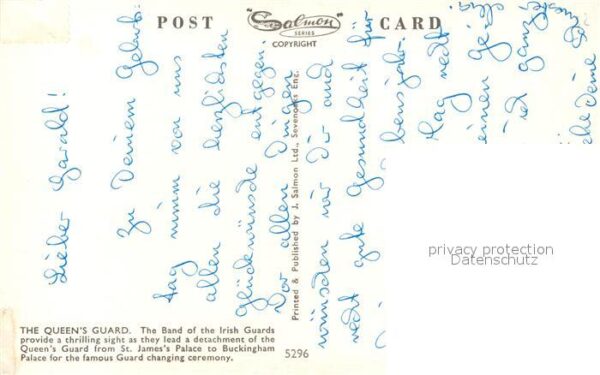 POST CARD
"Salmon"
SERIES
COPYRIGHT
Lieber Garald!
Zu Deinem Geburts-
tag nimm von uns
allen die herzlichsten
glückwünsche entgegen.
Vor allen Dingen
wünschen wir Dir auch
recht gute Gesundheit für
bensjahr.
Mag recht
einen
ist ganz
Deine
Printed & Published by J. Salmon Ltd., Sevenoaks Eng.
privacy protection
Datenschutz
THE QUEEN'S GUARD. The Band of the Irish Guards
provide a thrilling sight as they lead a detachment of the
Queen's Guard from St. James's Palace to Buckingham
Palace for the famous Guard changing ceremony.
5296